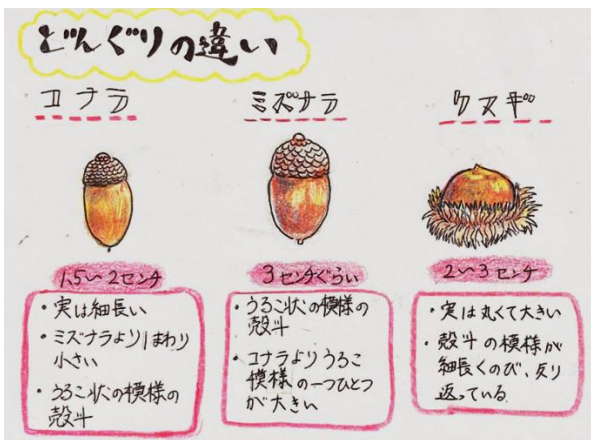 どんぐりの違い
コナラ
ミズナラ
クヌギ
1.5〜2センチ
・実は細長い
・ミズナラより1まわり
小さい
・うろこ状の模様の
殻斗
3センチぐらい
・うろこ状の模様の
殻斗
・コナラよりうろこ
模様の一つひとつ
が大きい
2〜3センチ
・実は丸くて大きい
・殻斗の模様が
細長くのび、反り
返っている